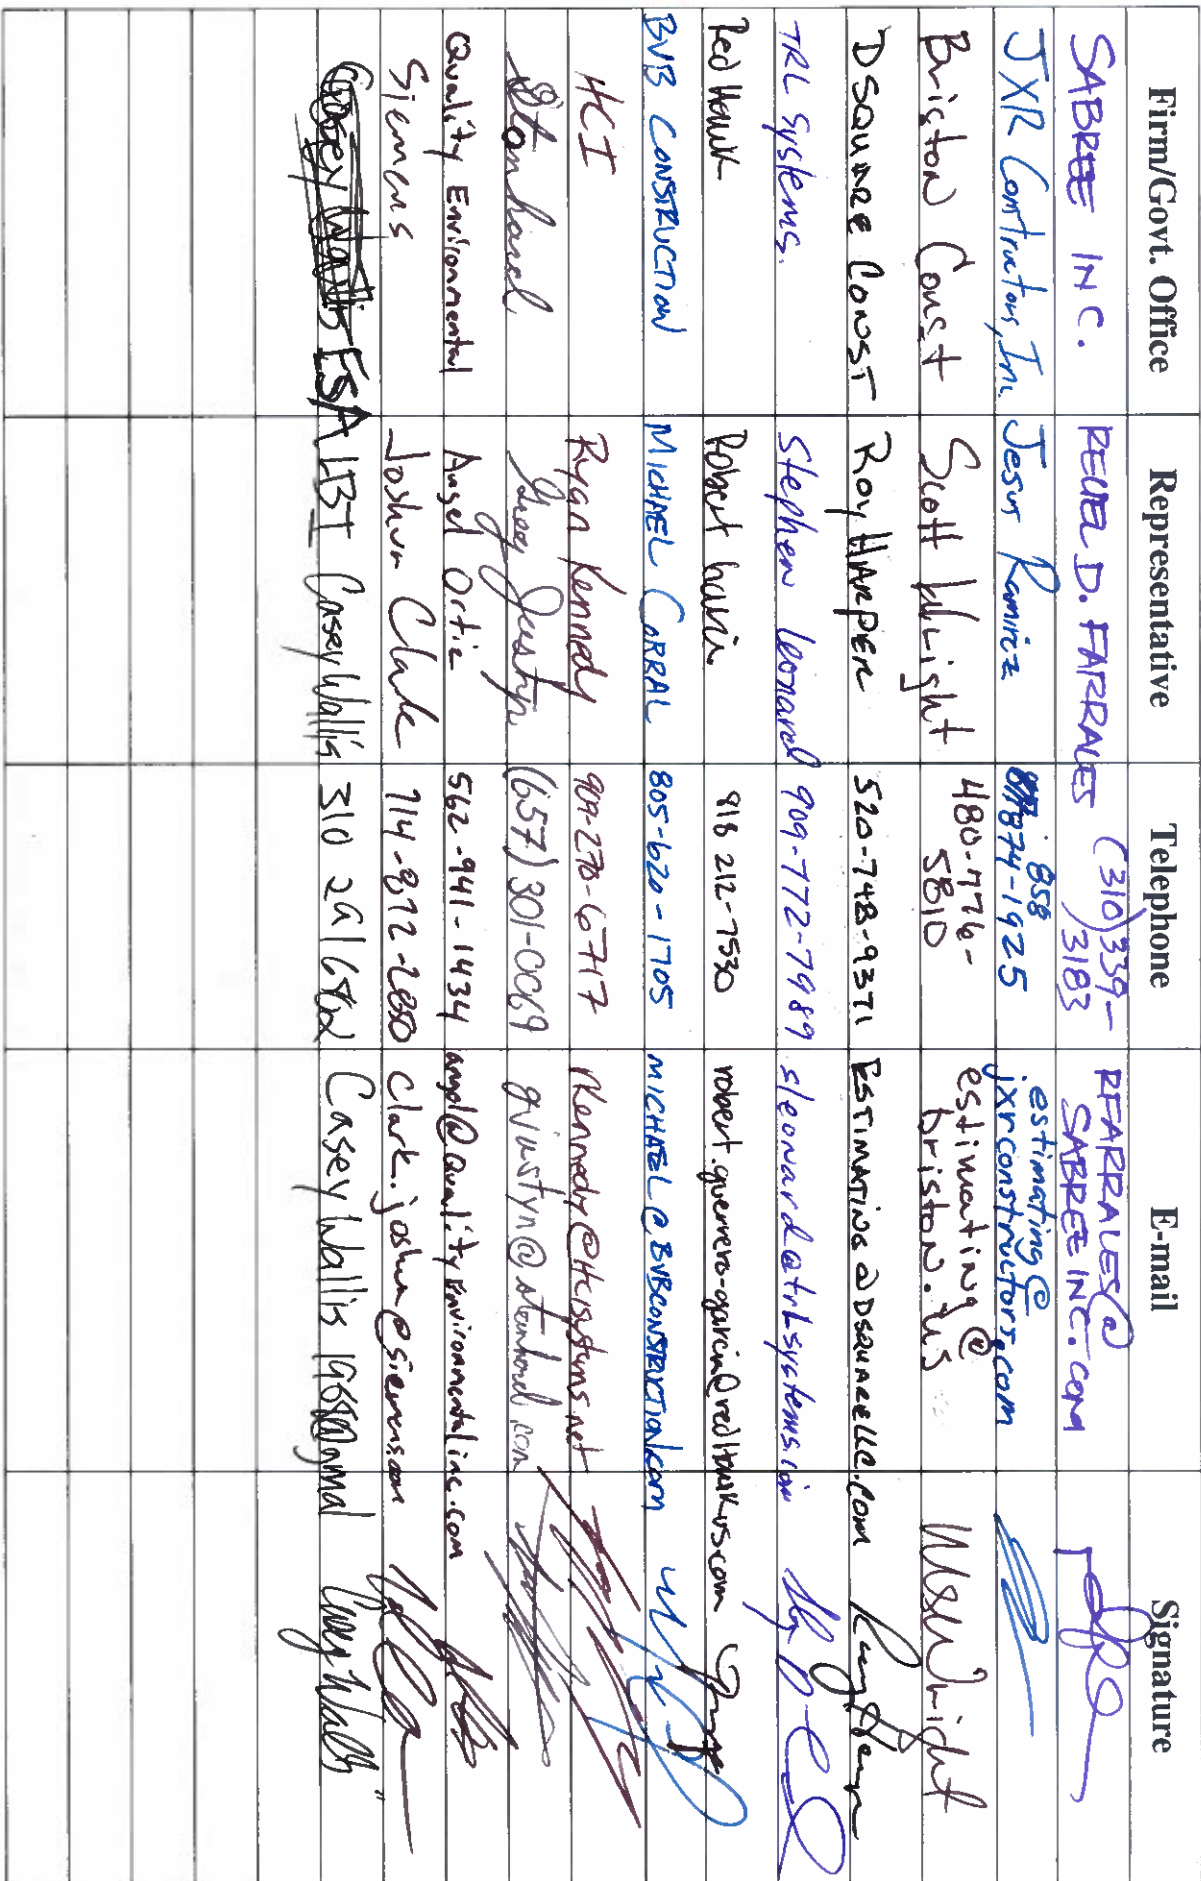 Firm/Govt. Office Representative Telephone E-mail Signature
SABREE INC. REUEL D. FARRALES (310) 339-3183 RFARRALES@SABREEINC.COM
JXR Constructors, Inc. Jesus Ramirez 858 874-1925 estimating@jxrconstructors.com
Briston Const Scott Wright 480-776-5810 estimating@briston.us MSWright
D SQUARE CONST Roy HARPER 520-748-9371 ESTIMATING@DSQUARELLC.COM
TRL Systems. Stephen Leonard 909-772-7989 sleonard@trlsystems.com
Red Hawk Robert 818 212-7530 robert.guerrero-garcia@redhawkus.com
BVB CONSTRUCTION MICHAEL CORRAL 805-620-1705 MICHAEL@BVBCONSTRUCTION.com
HCI Ryan Kennedy 909-270-6717 rkennedy@HCIsystems.net
Stanhard Greg Justyn (657) 301-0069 gjustyn@
Quality Environmental Angel Ortiz 562-941-1434 angel@QualityEnvironmentalinc.com
Siemens Joshua Clark 714-812-2880 Clark.joshua@siemens.com
Casey Wallis ESA LBI Casey Wallis 310 Casey Wallis 1968@gmal Casey Wallis